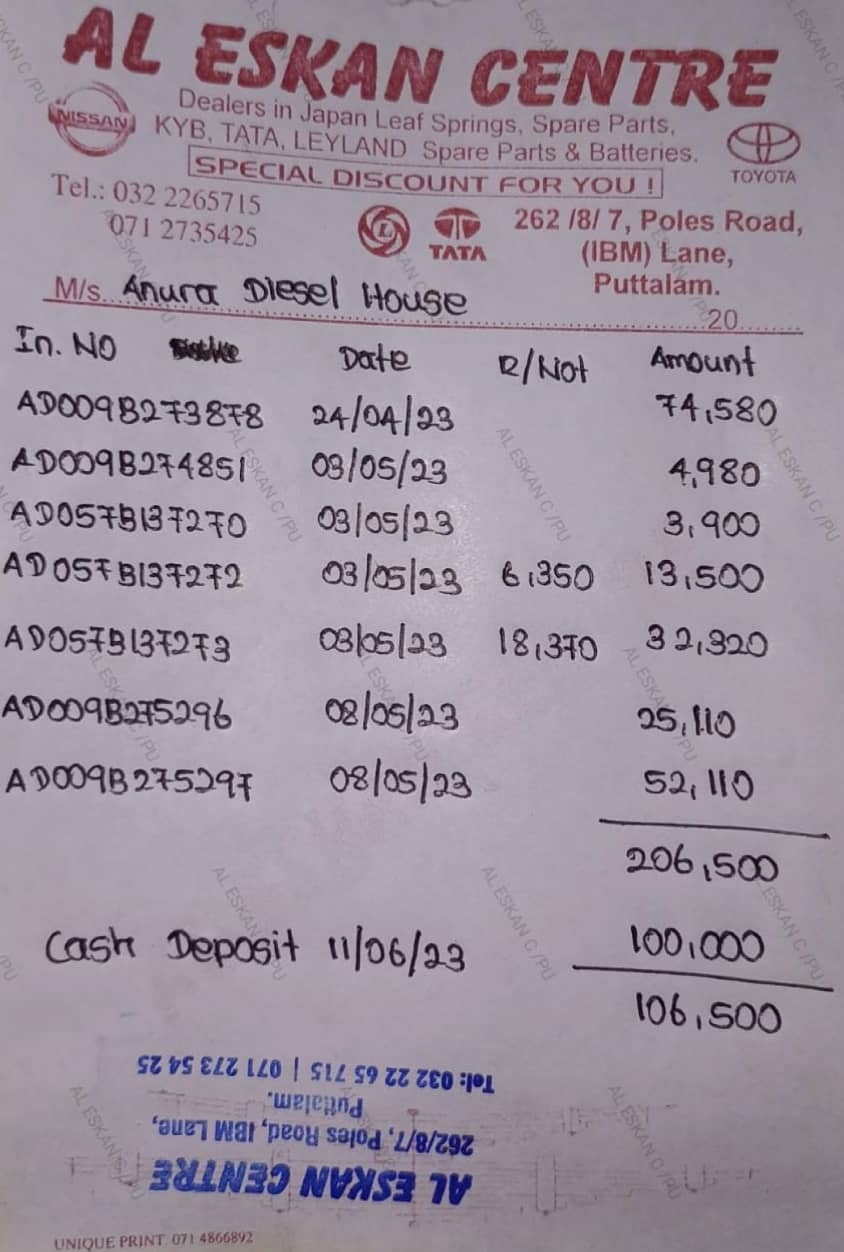 AL ESKAN CENTRE
NISSAN
Dealers in Japan Leaf Springs, Spare Parts,
KYB, TATA, LEYLAND Spare Parts & Batteries.
SPECIAL DISCOUNT FOR YOU !
TOYOTA
Tel.: 032 2265715
071 2735425
L
TATA
262 /8/ 7, Poles Road,
(IBM) Lane,
Puttalam.
M/s. Anura Diesel House
20
In. NO Date R/Not Amount
AD009B273878 24/04/23 74,580
AD009B274851 03/05/23 4,980
AD057B137270 03/05/23 3,900
AD057B137272 03/05/23 6,350 13,500
AD057B137273 03/05/23 18,370 32,320
AD009B275296 08/05/23 25,110
AD009B275297 08/05/23 52,110
206,500
Cash Deposit 11/06/23 100,000
106,500
AL ESKAN CENTRE
262/8/7, Poles Road, IBM Lane,
Puttalam.
Tel: 032 22 65 715 | 071 273 54 25
UNIQUE PRINT 071 4866892
AL ESKAN C /PU